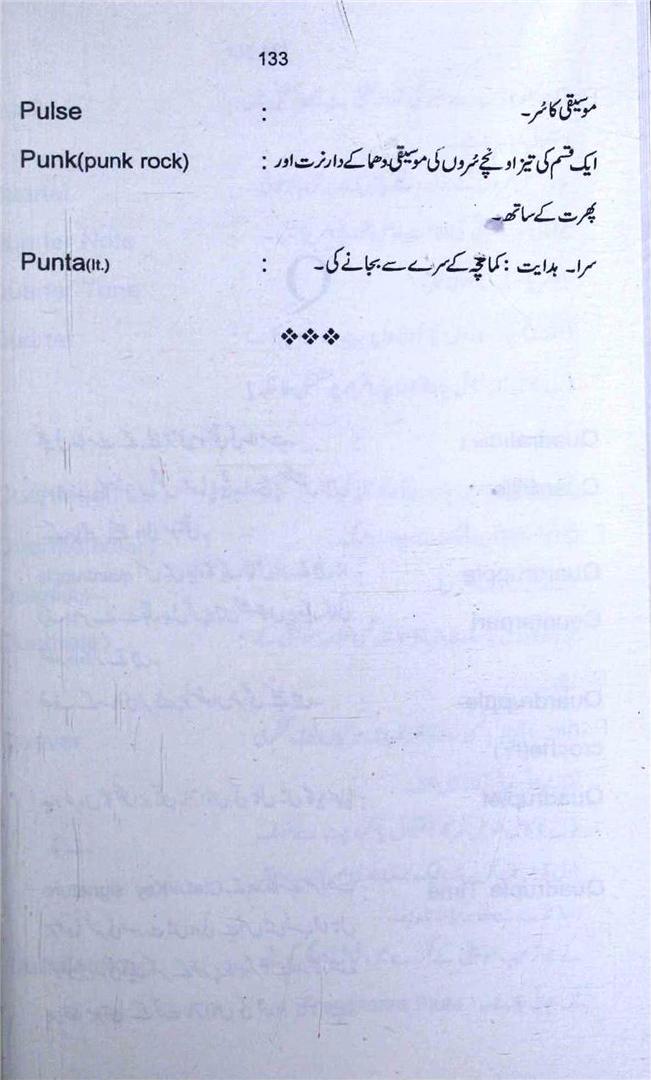 133
Pulse : موسیقی کا سُر۔
Punk(punk rock) : ایک قسم کی تیز اونچے سُروں کی موسیقی دھماکے دار نرت اور
پھرت کے ساتھ۔
Punta(It.) : سرا۔ ہدایت : کمانچہ کے سرے سے بجانے کی۔
❖❖❖